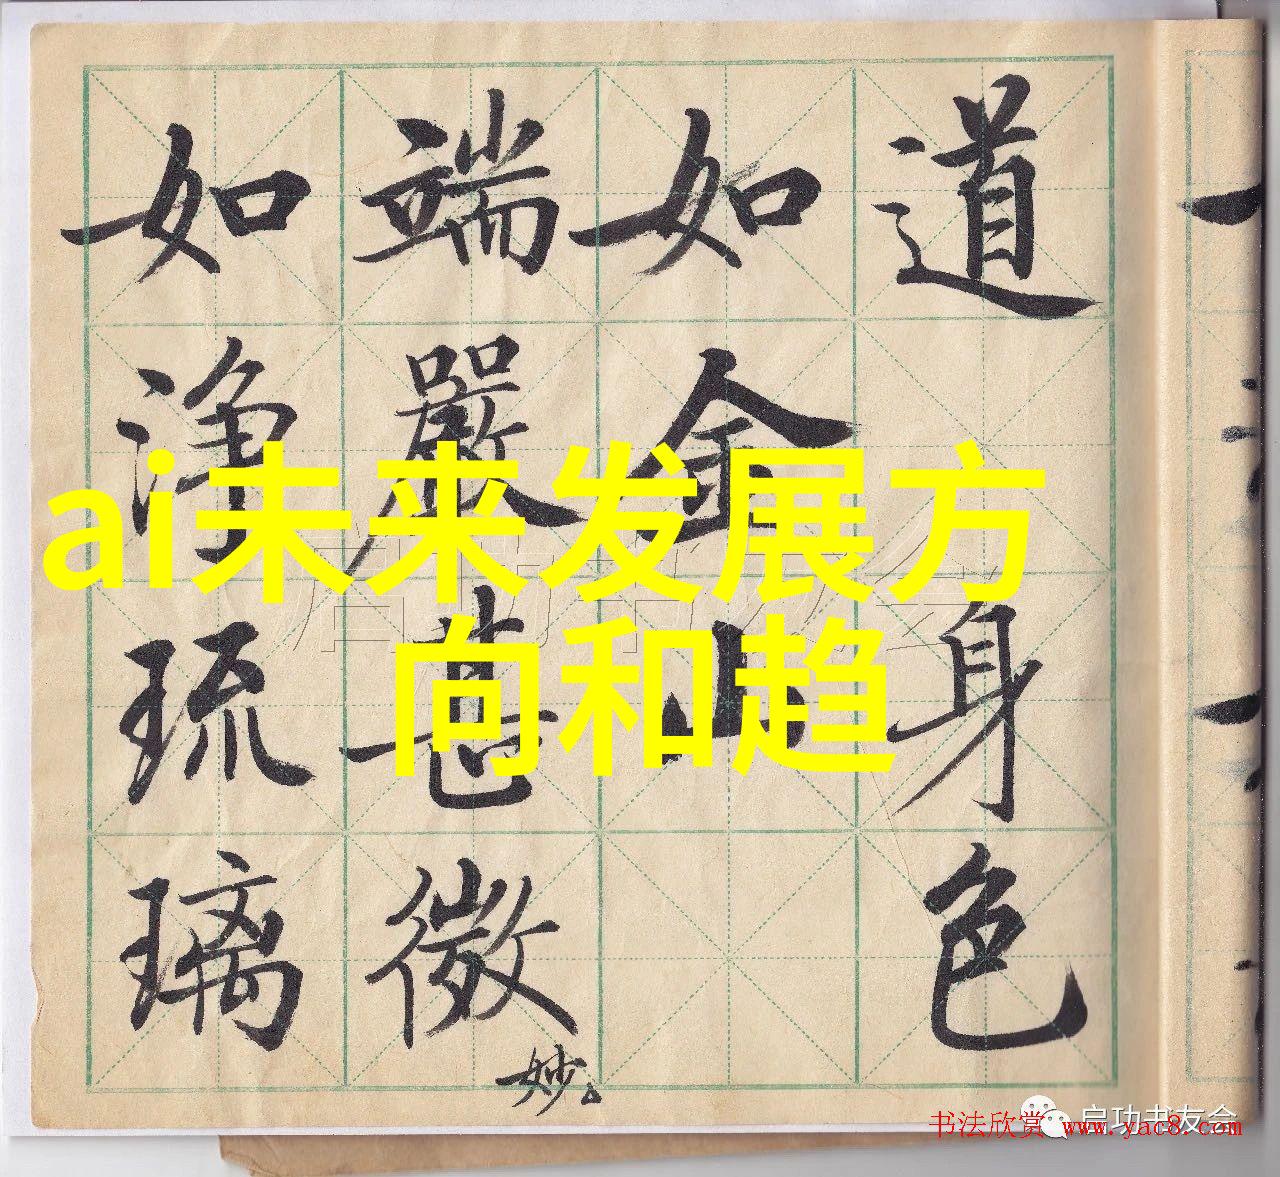 道身色
如金山
端嚴甚微妙
如淨琉璃
ai未来发展方
向和趋
启功书友会
书法欣赏 www.yac8.com